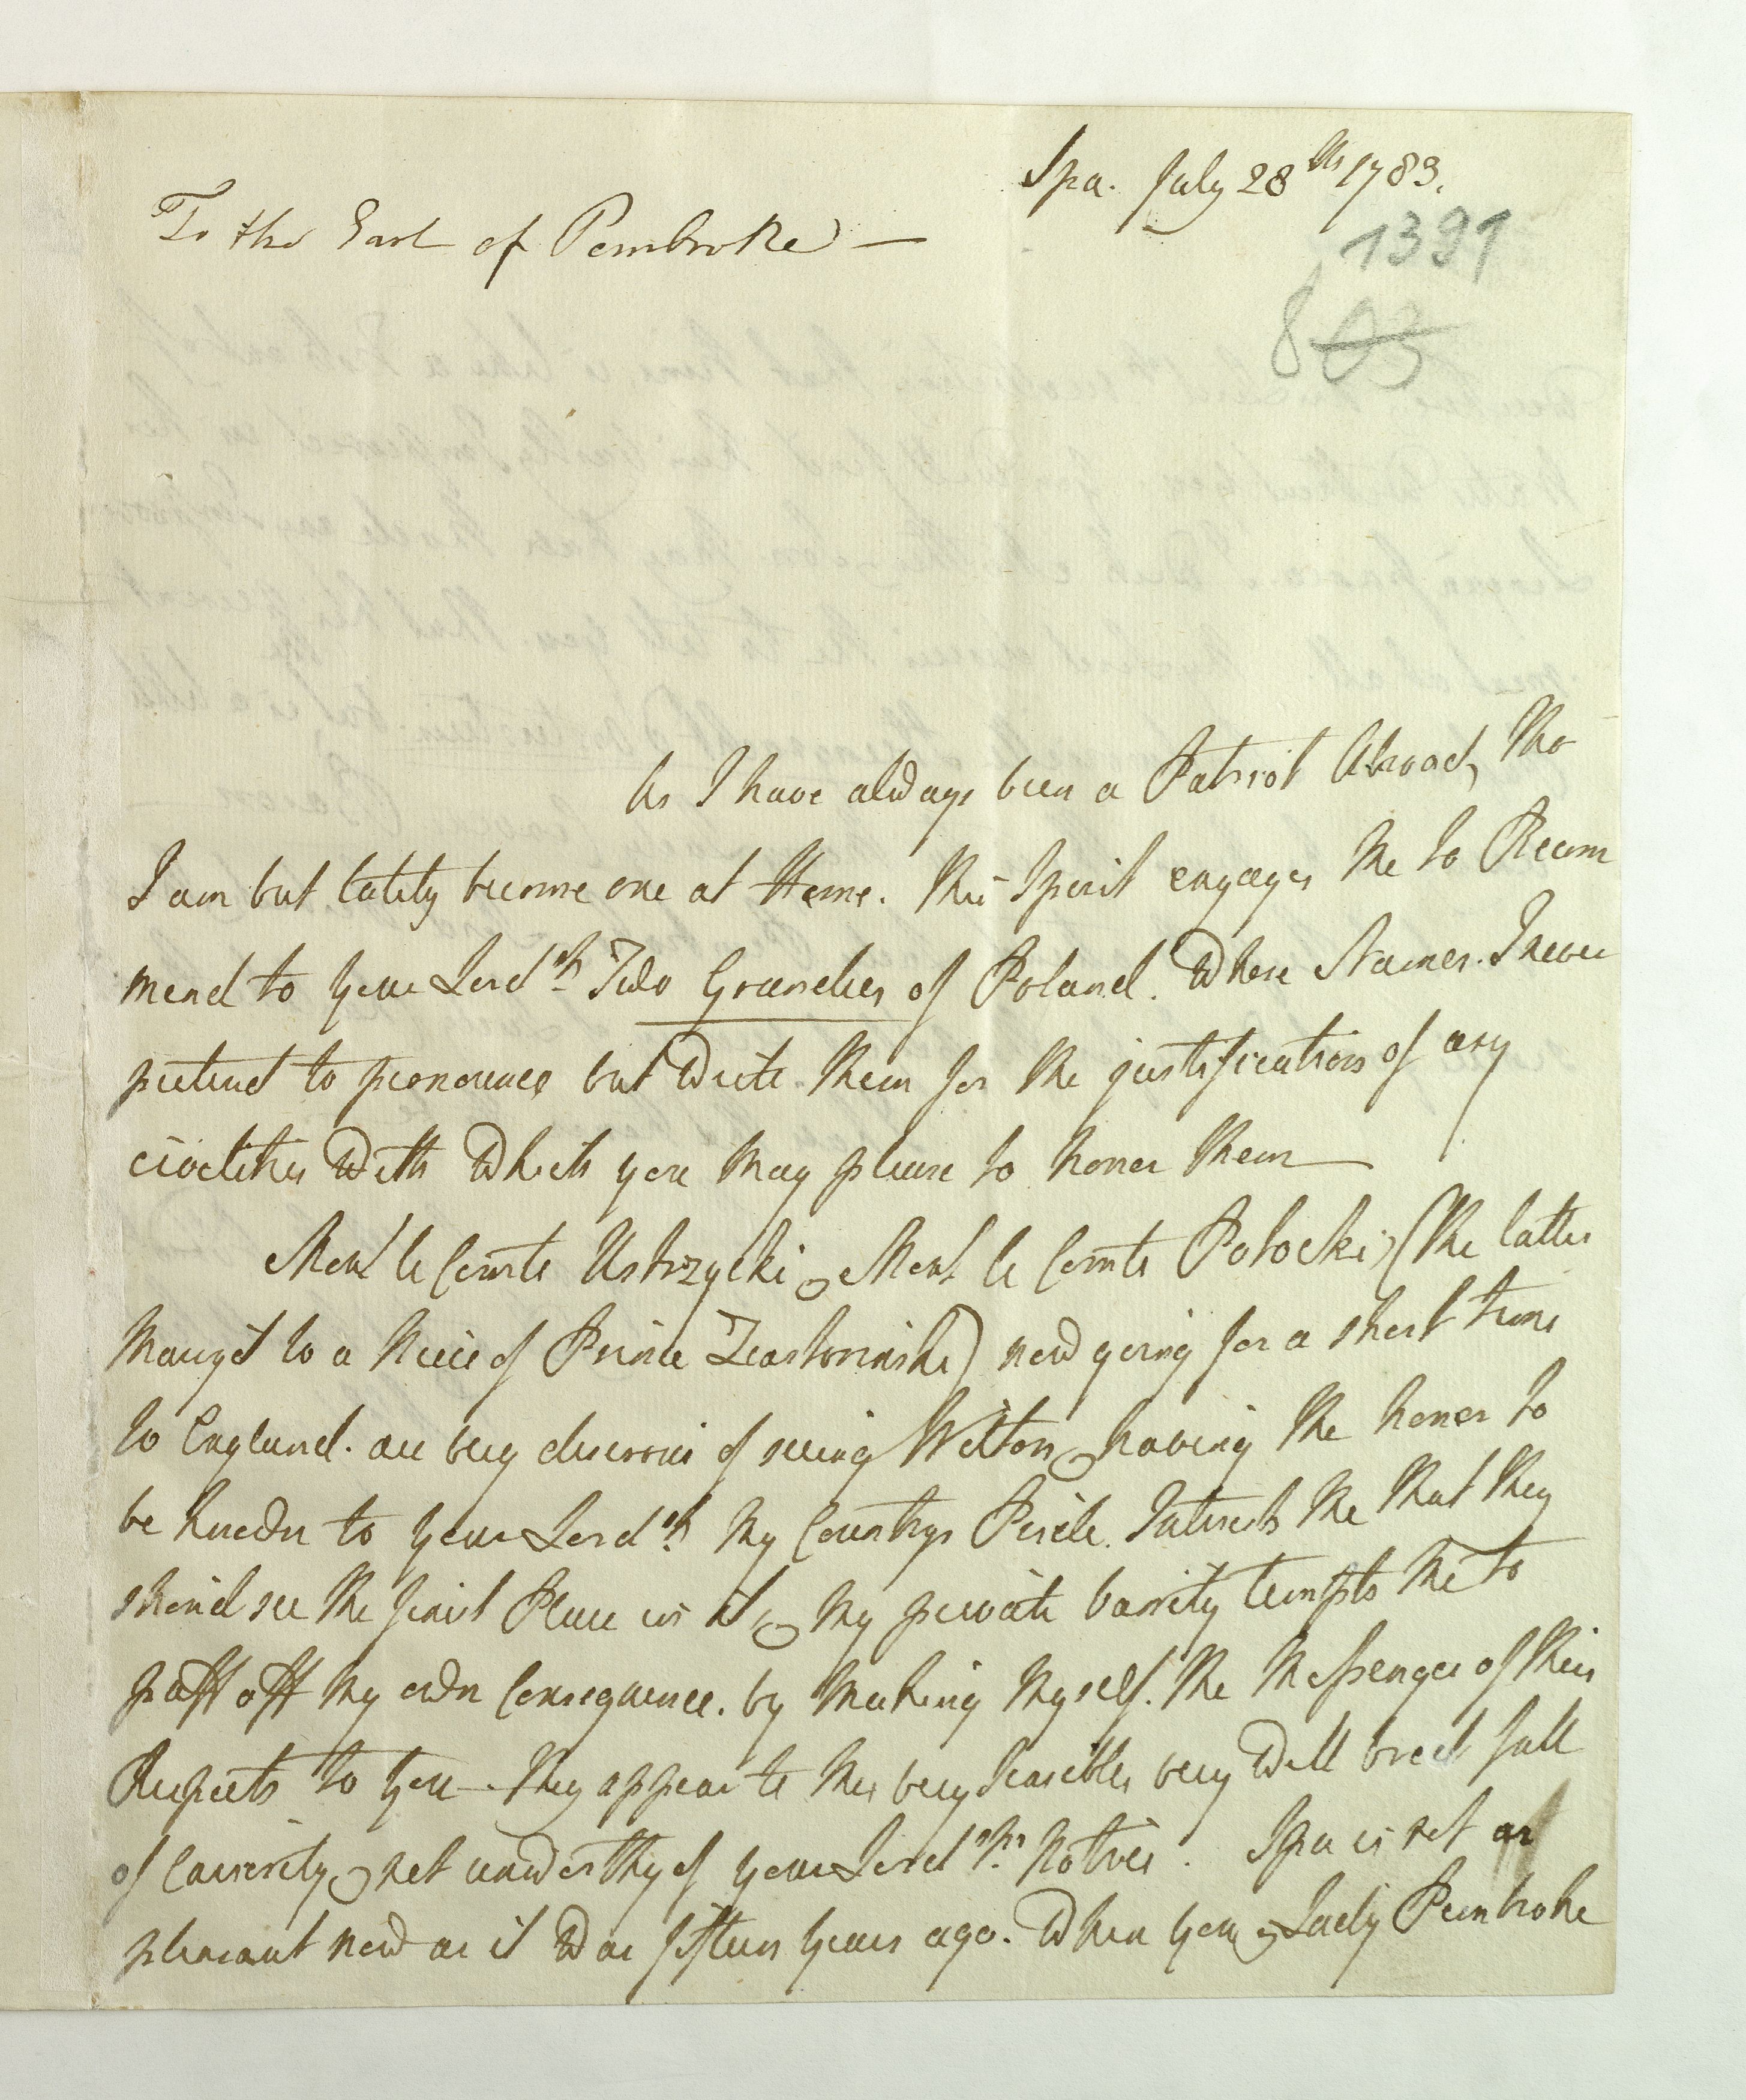 Spa. July 28th 1783.
To the Earl of Pembroke —
1391
803
As I have always been a Patriot Abroad, tho
I am but lately become one at Home. this Spirit engages me to Recom
mend to your Lordsh. Two Grandees of Poland. Whose Names I never
pretend to pronounce but write them for the justification of any
civilities with which you may please to honor them —
Monr le Comte Ustrzycki & Monr le Comte Potocki (the latter
marry'd to a Niece of Prince Zcartorinski) now going for a short time
to England. are very desirous of seeing Wilton & having the honor to
be known to your Lordsh. my Countrys Pride. Interests me that they
shou'd see the finest Place in it, & my private vanity tempts me to
puff off my own Consequence. by making myself. the Messenger of their
Respects to you — they appear to me very sensible, very well bred full
of curiosity & not unworthy of your Lordshs. Notice. Spa is not as
pleasant now as it was fifteen years ago. When you & Lady Pembroke